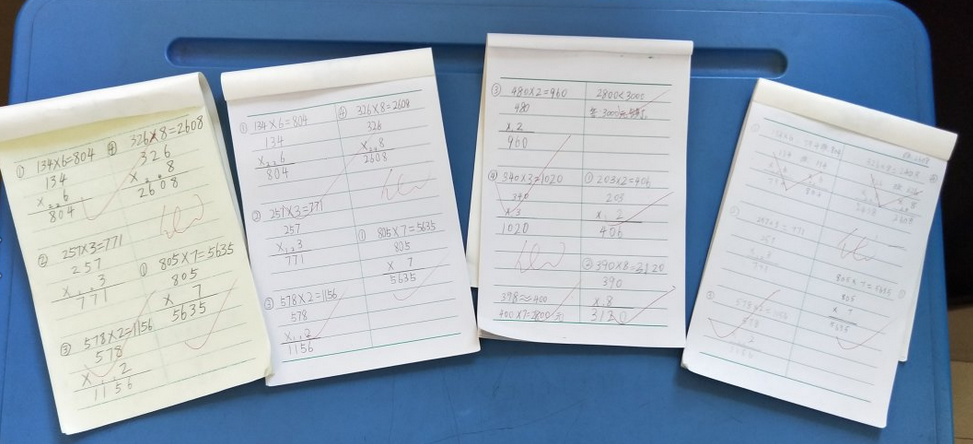 ① 134×6=804
134
× 6
804
② 257×3=771
257
× 3
771
③ 578×2=1156
578
× 2
1156
④ 326×8=2608
326
× 8
2608
① 805×7=5635
805
× 7
5635
① 134×6=804
134
× 6
804
② 257×3=771
257
× 3
771
③ 578×2=1156
578
× 2
1156
④ 326×8=2608
326
× 8
2608
① 805×7=5635
805
× 7
5635
③ 480×2=960
480
× 2
960
④ 340×3=1020
340
× 3
1020
398≈400
400×7=2800元
2800<3000
① 203×2=406
203
× 2
406
② 390×8=3120
390
× 8
3120
257×3=771
257
578×2=1156
578
2
805
× 7